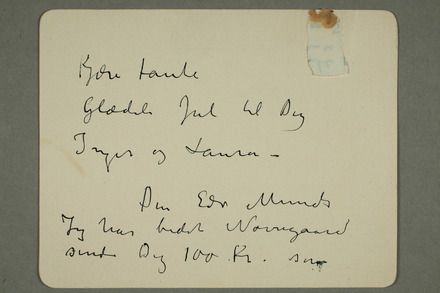 Kjære tante
Glædelig Jul til Dig
Inger og Laura –
Din Edv Munch
Jeg har bedst Nørregaard
sende Dig 100 Kr. som